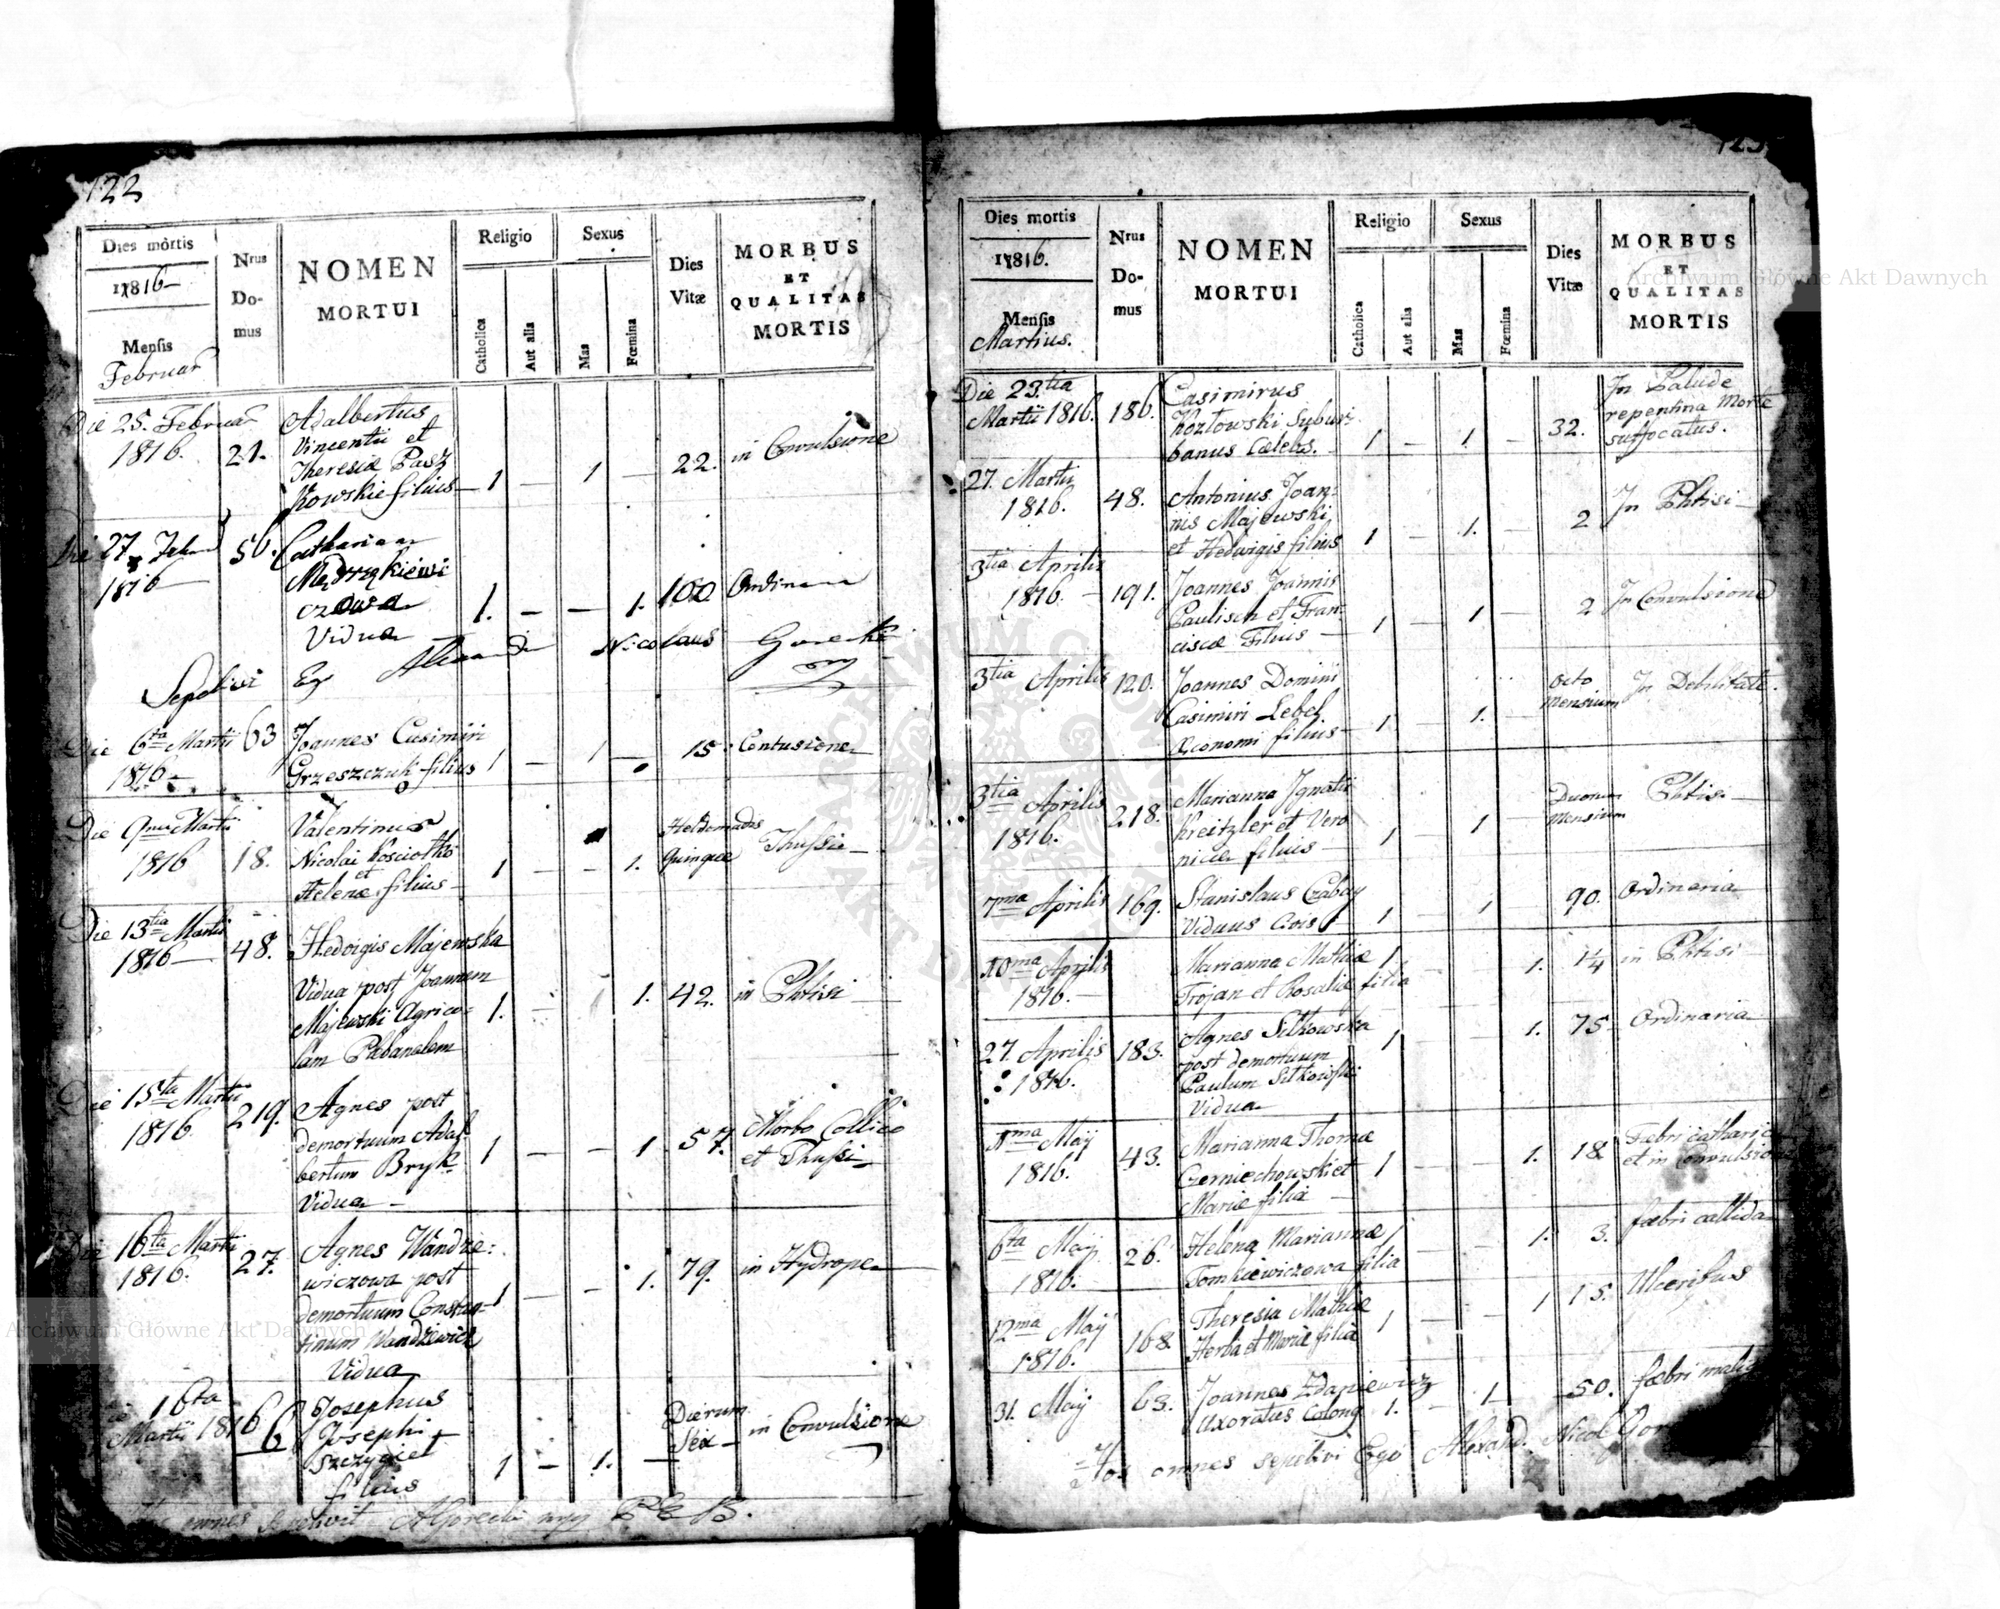 122
Dies mortis
1816
Mensis
Februar
Nrus
Do-
mus
NOMEN
MORTUI
Religio
Catholica
Aut alia
Sexus
Mas
Fœmina
Dies
Vitæ
MORBUS
ET
QUALITAS
MORTIS
Die 25. Februar
1816. 21.
Adalbertus
Vincentii et
Theresiæ Pasz
kowskie filius 1 — 1 — 22. in Convulsione
Die 27
1816 56.
Catharina
Mędrzykiewi
czowa
Vidua 1. — — 1. 100 Ordinaria
Sepelivi Ego Alexander Nicolaus Gorecki
Die 6ta Martii 63 Joannes Casimiri
1816 Grzeszczuk filius 1 — 1 — 15. Contusione
Die 9na Martii
1816 18.
Valentinus
Nicolai Kosciołko
et
Helenæ filius 1 — — 1. Hebdomadas
Quinque Thussi
Die 13tia Martii
1816 48.
Hedvigis Majewska
Vidua post Joannem
Majewski Agrico-
lam Plebanalem 1. — 1. 42. in Phtisi
Die 15ta Martii
1816. 219.
Agnes post
demortuum Adal
bertum Bryk
Vidua 1 — — 1 57. Morbo Collico
et Thussi
Die 16ta Martii
1816. 27.
Agnes Wandze:
wiczowa post
demortuum Constan-
tinum Wandzewicz
Vidua 1 — — 1. 79. in Hydrope
16ta
Martii 1816 6
Josephus
Josephi
Szczygieł
filius 1 — 1. — Dierum
Sex in Convulsione
omnes Sepelivit AGorecki mpp
123
Dies mortis
1816.
Mensis
Martius.
Nrus
Do-
mus
NOMEN
MORTUI
Religio
Catholica
Aut alia
Sexus
Mas
Fœmina
Dies
Vitæ
MORBUS
ET
QUALITAS
MORTIS
Die 23.tia
Martii 1816. 186.
Casimirus
Kozłowski Subur-
banus Cælebs. 1 — 1. — 32. In Palude
repentina Morte
suffocatus.
27. Martii
1816. 48.
Antonius Joan-
nis Majewski
et Hedwigis filius 1 — 1. — 2 In Phtisi
3tia Aprilis
1816. 191.
Joannes Joannis
Paulisch et Fran-
ciscæ Filius 1 — 1 — 2 In Convulsione
3tia Aprilis 120.
Joannes Domini
Casimiri Lebel
Œconomi filius 1 — 1. — Octo
Mensium In Debilitate.
3tia Aprilis
1816. 218.
Marianna Ignatii
Kreitzler et Vero
nicæ filius 1 — 1 — Duorum
Mensium Phtisi
7ma Aprilis 169.
Stanislaus Czabay
Viduus Civis 1 — 1 — 90. Ordinaria
10ma Aprilis
1816.
Marianna Mathiæ
Trojan et Rosaliæ filia 1 — — 1. 1¼ in Phtisi
27. Aprilis
1816. 183.
Agnes Sitkowska
post demortuum
Paulum Sitkowski
Vidua 1 1. 75 Ordinaria
1ma Maÿ
1816. 43.
Marianna Thomæ
Czerniechowski et
Mariæ filia 1 — — 1. 18 Fæbri catharica
et in convulsione
6ta Maÿ
1816. 26.
Helena Mariannæ
Tomkiewiczowa filia 1 — — 1. 3. fæbri callida
12ma Maÿ
1816. 168.
Theresia Mathiæ
Herba et Mariæ filia 1 — — 1 15. Ulceribus
31. Maÿ 63.
Joannes Zdaniewicz
Uxoratus Colong 1. — 1 — 50. fæbri
Hos omnes sepelivi Ego Alexand. Nicol
Archiwum Główne Akt Dawnych
Archiwum Główne Akt Dawnych
ARCHIWUM GŁÓWNE
AKT DAWNYCH